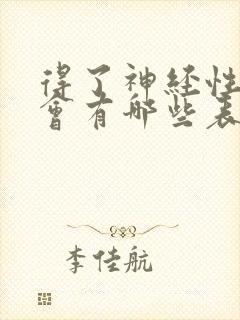 得了神经性
会有哪些表
李佳航